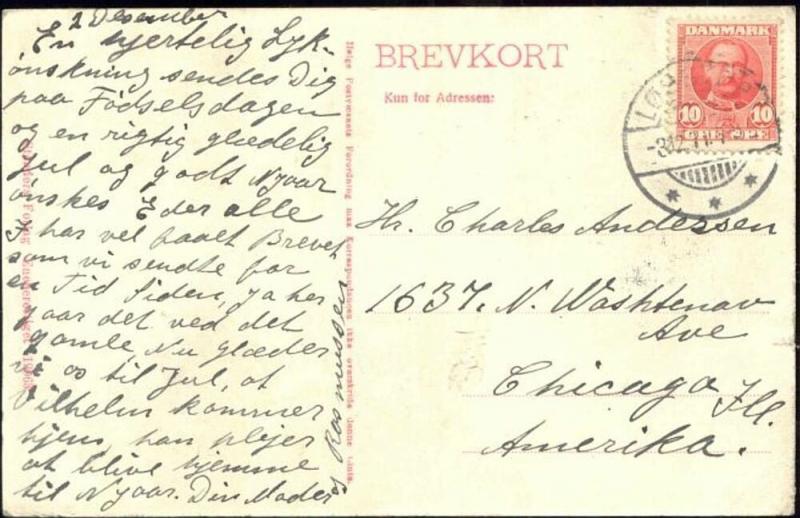 2 Desember
En hjertelig Lyk-
önskning sendes Dig
paa Födselsdagen
og en rigtig glædelig
Jul og godt Nyaar
önskes Eder alle
I har vel faaet Brevet
som vi sendte for
en Tid siden, ja her
gaar det ved det
gamle, Nu glæder
vi os til Jul, at
Vilhelm kommer
hjem, han plejer
at blive hjemme
til Nyaar. Din Moder
og Rasmussen
Ifølge Postvæsenets Forordning maa Korrespondancen ikke overskride denne Linie.
BREVKORT
Kun for Adressen:
DANMARK
10 10
ØRE ØRE
LØG
-3.12.11.
Hr. Charles Andersen
1637. N. Washtenav
Ave
Chicago Ill.
Amerika.